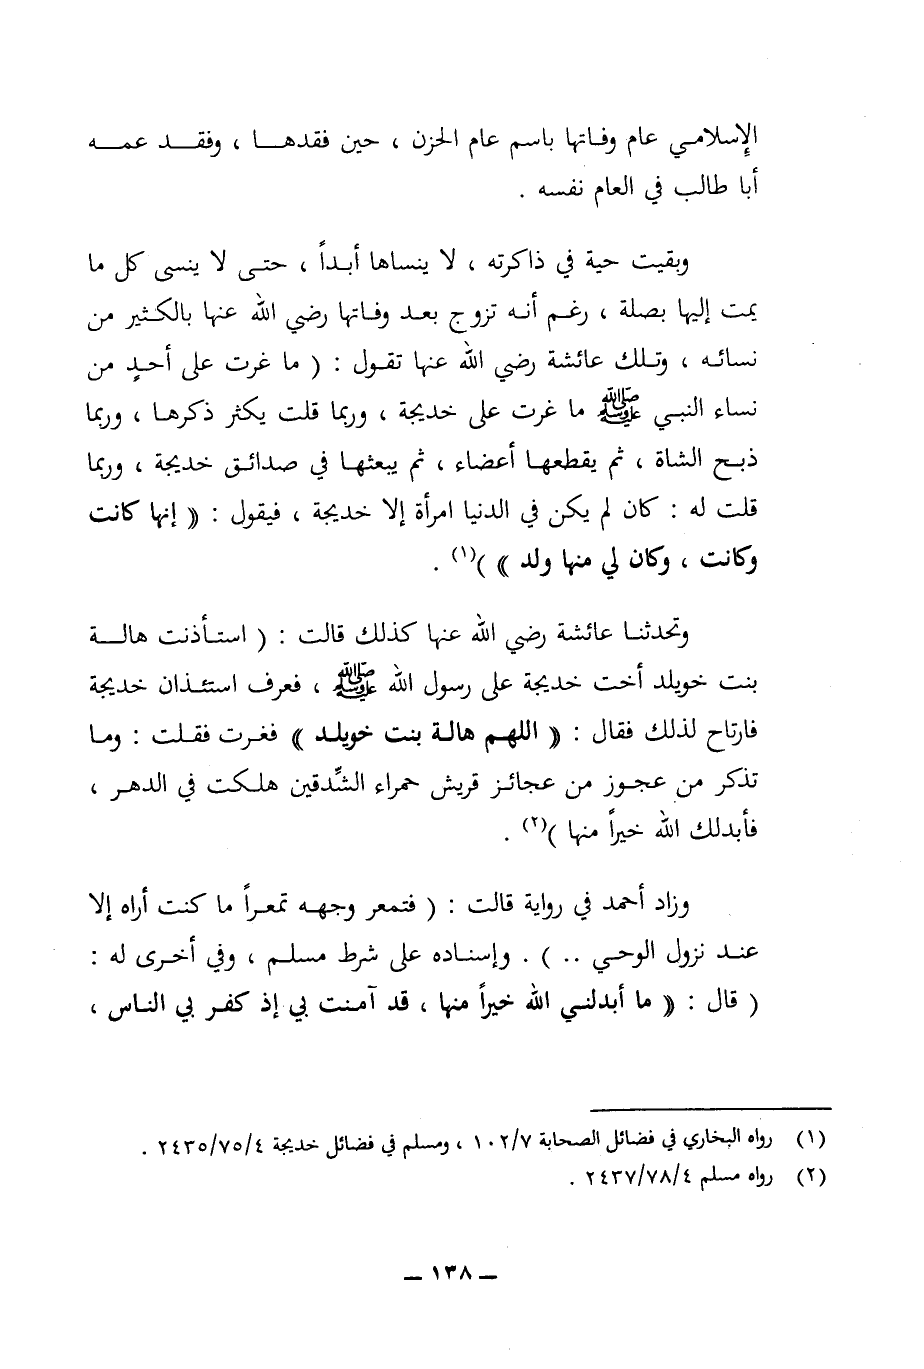 الإسلامي عام وفاتها باسم عام الحزن ، حين فقدها ، وفقد عمه
أبا طالب في العام نفسه .
وبقيت حية في ذاكرته ، لا ينساها أبداً ، حتى لا ينسى كل ما
يمت إليها بصلة ، رغم أنه تزوج بعد وفاتها رضي الله عنها بالكثير من
نسائه ، وتلك عائشة رضي الله عنها تقول : ( ما غرت على أحدٍ من
نساء النبي ﷺ ما غرت على خديجة ، وربما قلت يكثر ذكرها ، وربما
ذبح الشاة ، ثم يقطعها أعضاء ، ثم يبعثها في صدائق خديجة ، وربما
قلت له : كان لم يكن في الدنيا امرأة إلا خديجة ، فيقول : « إنها كانت
وكانت ، وكان لي منها ولد » )(١) .
وتحدثنا عائشة رضي الله عنها كذلك قالت : ( استأذنت هالة
بنت خويلد أخت خديجة على رسول الله ﷺ ، فعرف استئذان خديجة
فارتاح لذلك فقال : « اللهم هالة بنت خويلد » فغرت فقلت : وما
تذكر من عجوز من عجائز قريش حمراء الشِّدقين هلكت في الدهر ،
فأبدلك الله خيراً منها )(٢) .
وزاد أحمد في رواية قالت : ( فتمعر وجهه تمعراً ما كنت أراه إلا
عند نزول الوحي .. ) . وإسناده على شرط مسلم ، وفي أخرى له :
( قال : « ما أبدلني الله خيراً منها ، قد آمنت بي إذ كفر بي الناس ،
(١) رواه البخاري في فضائل الصحابة ١٠٢/٧ ، ومسلم في فضائل خديجة ٢٤٣٥/٧٥/٤ .
(٢) رواه مسلم ٢٤٣٧/٧٨/٤ .
ــ ١٣٨ ــ